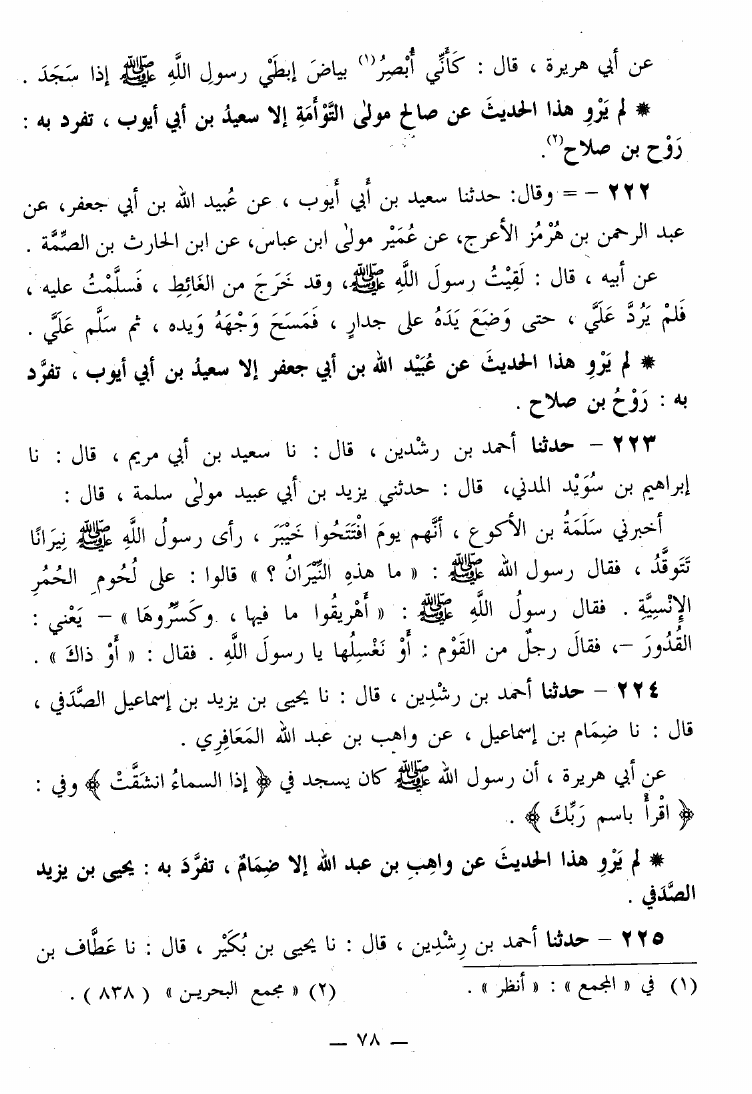 عن أبي هريرة ، قال : كَأَنِّي أُبْصِرُ(١) بياضَ إبطَيْ رسولِ اللَّهِ ﷺ إذا سَجَدَ .
* لم يَرْوِ هذا الحديثَ عن صالح مولىٰ التَّوْأَمَةِ إلا سعيدُ بن أبي أيوب ، تفرد به :
رَوْح بن صلاح(٢).
٢٢٢ – = وقال: حدثنا سعيد بن أَبي أَيوب ، عن عُبيد الله بن أبي جعفر، عن
عبد الرحمن بن هُرْمُز الأعرج، عن عُمَيْر مولىٰ ابن عباس، عن ابن الحارث بن الصِّمَّة .
عن أبيه ، قال : لَقِيْتُ رسولَ اللَّهِ ﷺ، وقد خَرَجَ من الغَائِطِ ، فَسلَّمْتُ عليه ،
فَلمْ يَرُدَّ عَلَيَّ ، حتى وَضَعَ يَدَهُ على جدارٍ ، فَمَسَحَ وَجْهَهُ وَيده ، ثم سَلَّم عَلَيَّ .
* لم يَرْوِ هذا الحديثَ عن عُبَيْد الله بن أبي جعفر إلا سعيدُ بن أبي أيوب ، تفرَّد
به : رَوْحُ بن صلاح .
٢٢٣ – حدثنا أحمد بن رشْدين ، قال : نا سعيد بن أبي مريم ، قال : نا
إبراهيم بن سُوَيْد المدني، قال : حدثني يزيد بن أبي عبيد مولىٰ سلمة ، قال :
أخبرني سَلَمَةُ بن الأكوع ، أنَّهم يومَ افْتَتَحُوا خَيْبَرَ ، رأى رسولُ اللَّهِ ﷺ نِيرَانًا
تَتَوقَّدُ ، فقال رسول الله ﷺ : « ما هذهِ النِّيْرَانُ ؟ » قالوا : على لُحُومِ الحُمُرِ
الإِنْسِيَّةِ . فقال رسولُ اللَّهِ ﷺ : « أَهْرِيقُوا ما فيها ، وكَسِّرُوهَا » – يَعْني :
القُدُورَ –، فقالَ رجلٌ من القَوْم : أَوْ نَغْسِلُها يا رسولَ اللَّهِ . فقال : « أَوْ ذاكَ » .
٢٢٤ – حدثنا أحمد بن رشْدِين ، قال : نا يحيى بن يزيد بن إسماعيل الصَّدَفي ،
قال : نا ضِمَام بن إسماعيل ، عن واهب بن عبد الله المَعَافِرِي .
عن أبي هريرة ، أن رسول الله ﷺ كان يسجد في ﴿ إذا السماءُ انشقَّتْ ﴾ وفي :
﴿ اقْرأْ باسم رَبِّكَ ﴾ .
* لم يَرْوِ هذا الحديثَ عن واهِب بن عبد الله إلا ضِمَامٌ ، تفرَّدَ به : يحيى بن يزيد
الصَّدَفي .
٢٢٥ – حدثنا أحمد بن رِشْدِين ، قال : نا يحيى بن بُكَيْر ، قال : نا عَطَّاف بن
(١) في « المجمع » : « أنظر » .
(٢) « مجمع البحرين » ( ٨٣٨ ) .
– ٧٨ –